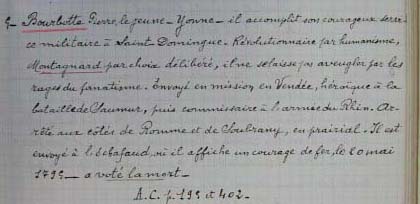 9- Bourbotte Pierre, le jeune - Yonne - il accomplit son courageux servi-
ce militaire à Saint Domingue. Révolutionnaire par humanisme,
Montagnard par choix délibéré, il ne se laisse pas aveugler par les
rages du fanatisme. Envoyé en mission en Vendée, héroïque à la
bataille de Saumur, puis commissaire à l'armée du Rhin. Ar-
rêté aux côtés de Romme et de Soubrany, en prairial. Il est
envoyé à l'échafaud, où il affiche un courage de fer, le mai
1795 - a voté la mort -
A.C. p. 195 et 402.